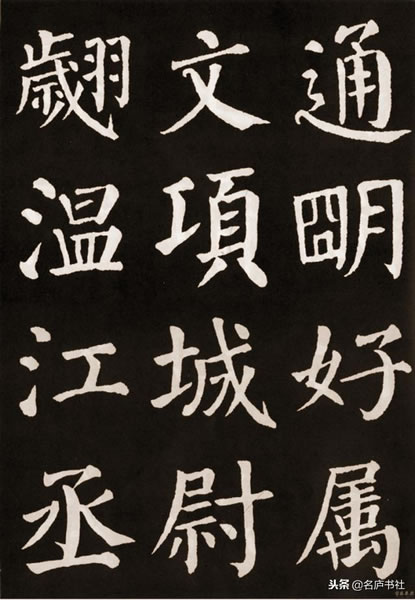 通朙好属
文項城尉
翽温江丞
头条 @名庐书社